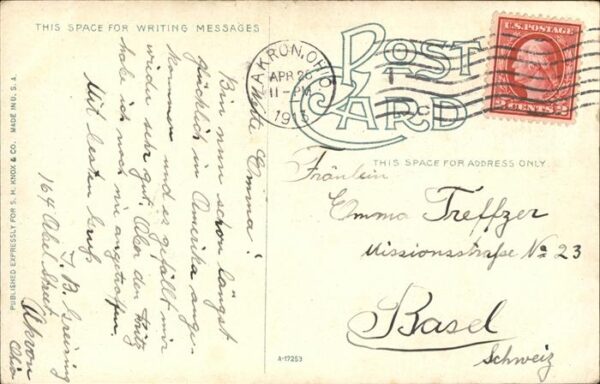 THIS SPACE FOR WRITING MESSAGES
POST CARD
AKRON, OHIO
APR 26
11-PM
1913
U.S. POSTAGE
2 CENTS 2
THIS SPACE FOR ADDRESS ONLY
Fräulein
Emma Treffzer
Missionsstraße No 23
Basel
Schweiz
Liebe Emma!
Bin nun schon längst
glücklich in Amerika ange-
kommen und es gefällt mir
wieder sehr gut. Aber den Fritz
habe ich noch nie angetroffen.
Mit besten Gruß
J. B. Greining
164 Abel Street
Akron
Ohio
PUBLISHED EXPRESSLY FOR S. H. KNOX & CO. MADE IN U. S. A.
A-17253